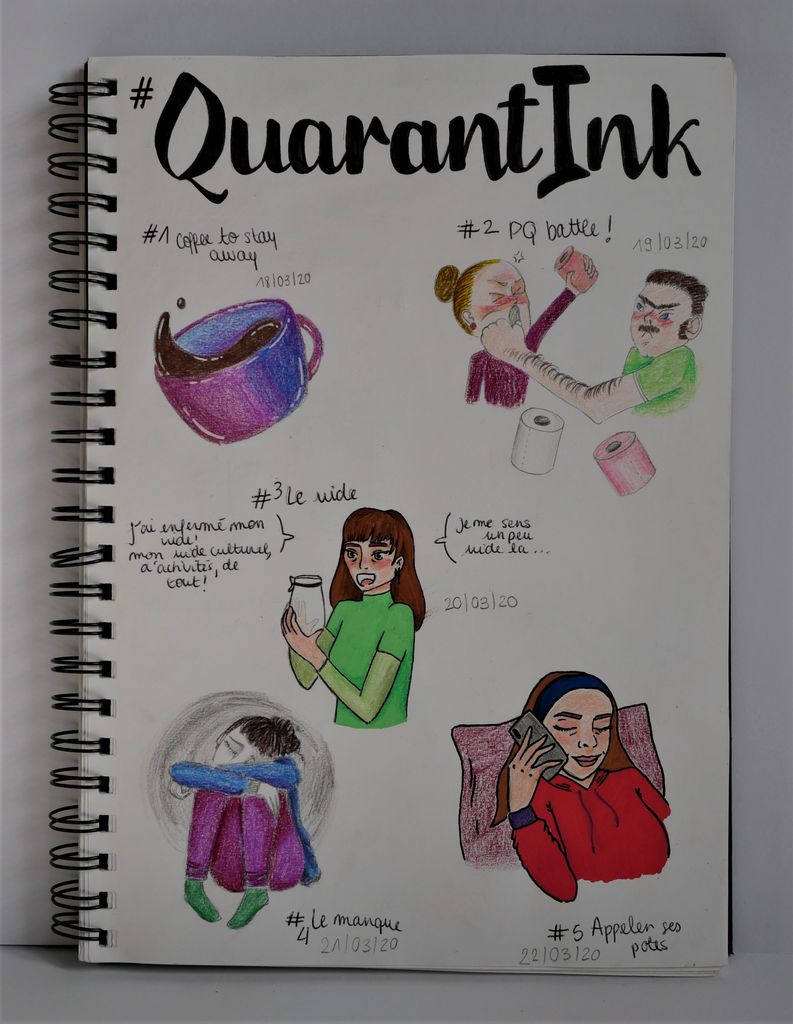 #QuarantInk
#1 Coffee to stay
away
18/03/20
#2 PQ battle !
19/03/20
#3 Le vide
J'ai enfermé mon
vide!
mon vide culturel,
d'activités, de
tout!
Je me sens
un peu
vide là...
20/03/20
#4 Le manque
21/03/20
#5 Appeler ses
potes
22/03/20